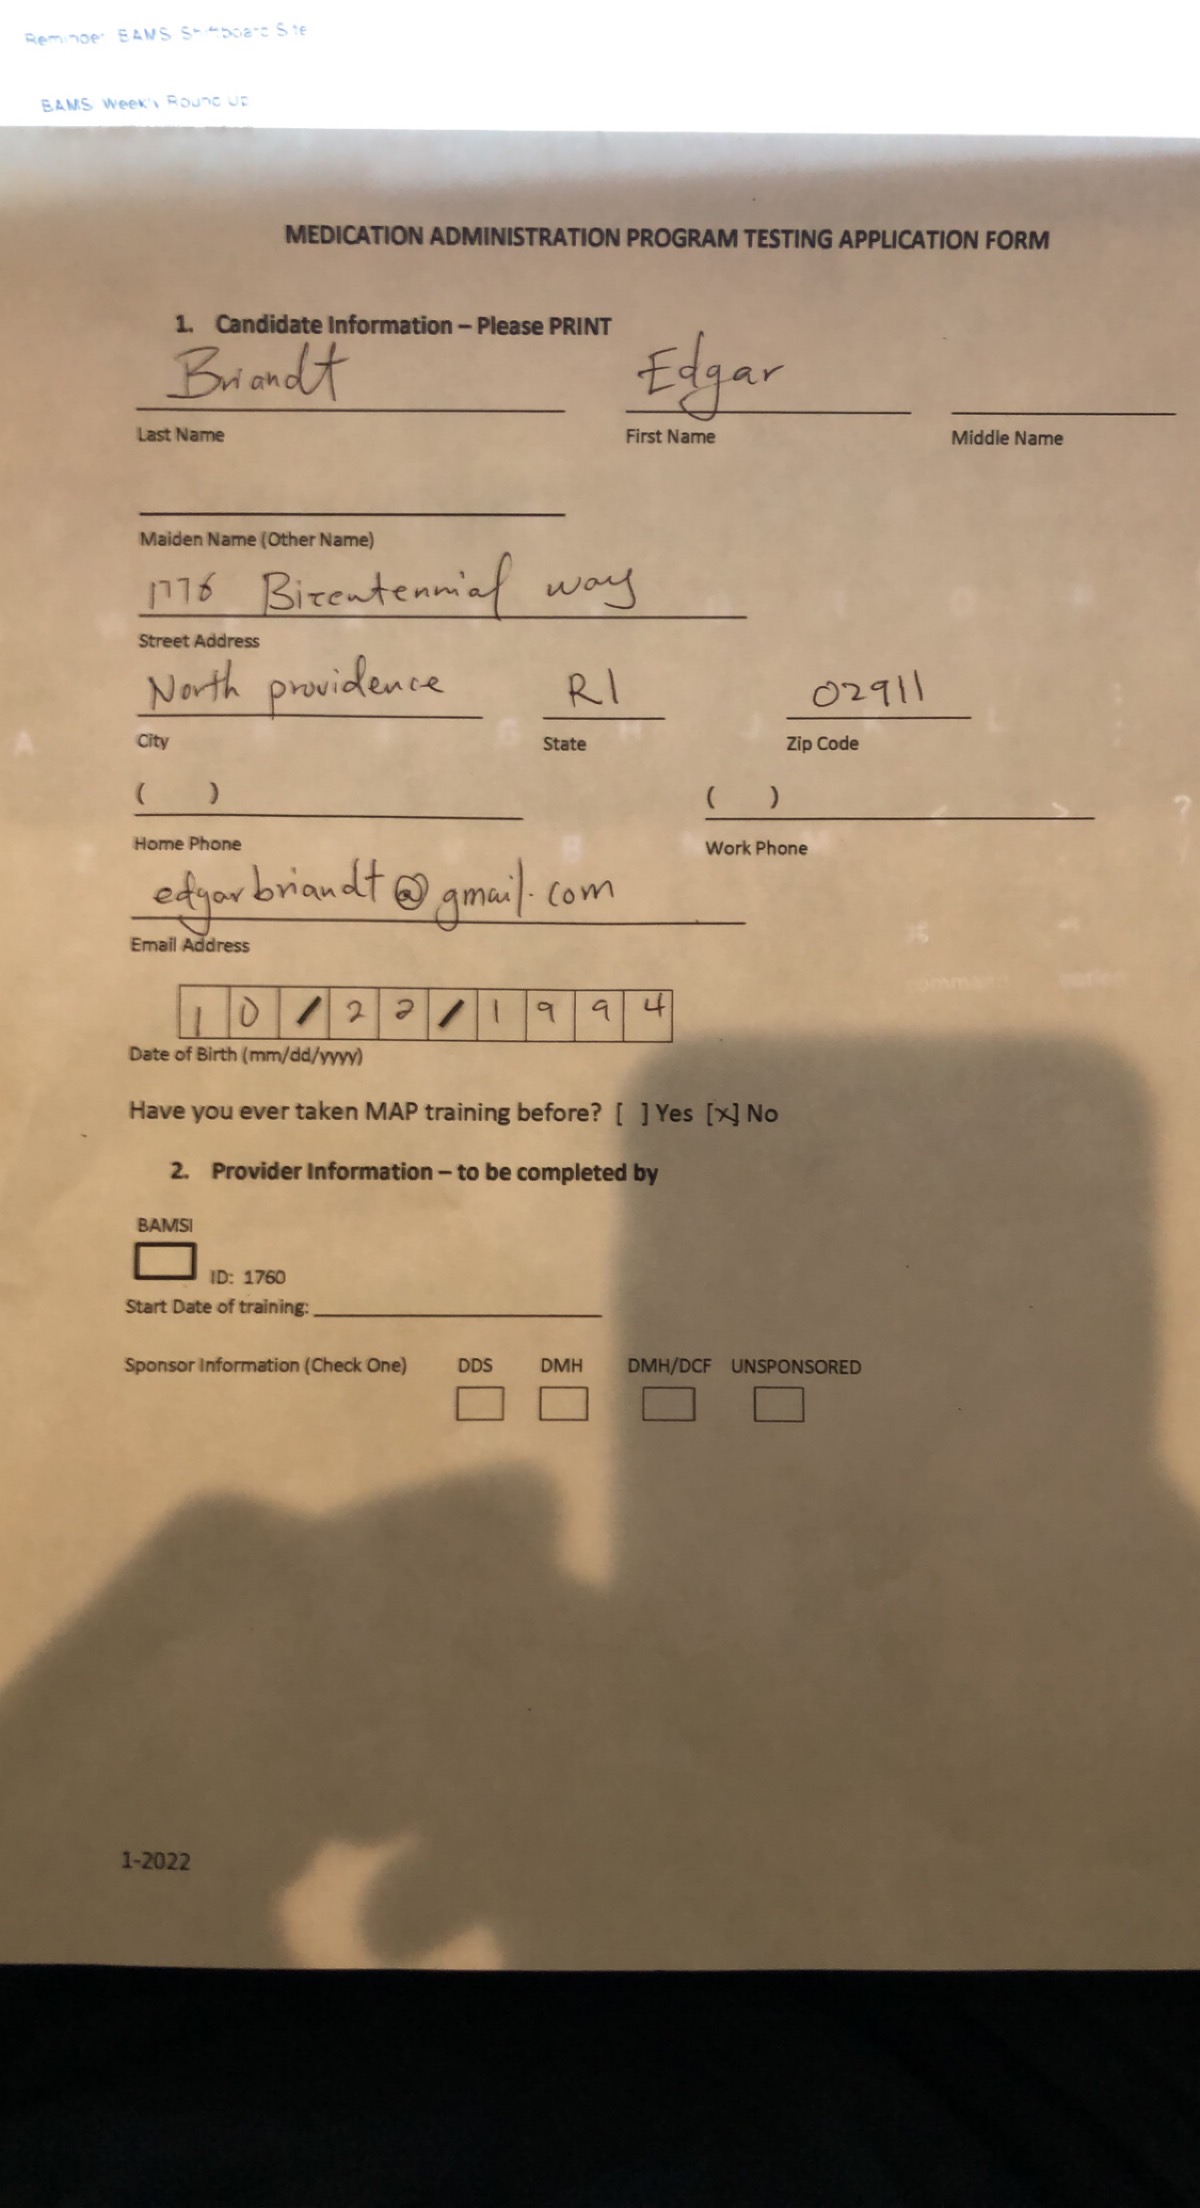 Reminder BAMS Shiftboard Site
BAMS Weekly Round Up
MEDICATION ADMINISTRATION PROGRAM TESTING APPLICATION FORM
1. Candidate Information – Please PRINT
Briandt Edgar
Last Name First Name Middle Name
Maiden Name (Other Name)
1776 Bicentennial way
Street Address
North providence RI 02911
City State Zip Code
( ) ( )
Home Phone Work Phone
edgarbriandt@gmail.com
Email Address
10/22/1994
Date of Birth (mm/dd/yyyy)
Have you ever taken MAP training before? [ ] Yes [x] No
2. Provider Information – to be completed by
BAMSI
ID: 1760
Start Date of training:
Sponsor Information (Check One) DDS DMH DMH/DCF UNSPONSORED
1-2022